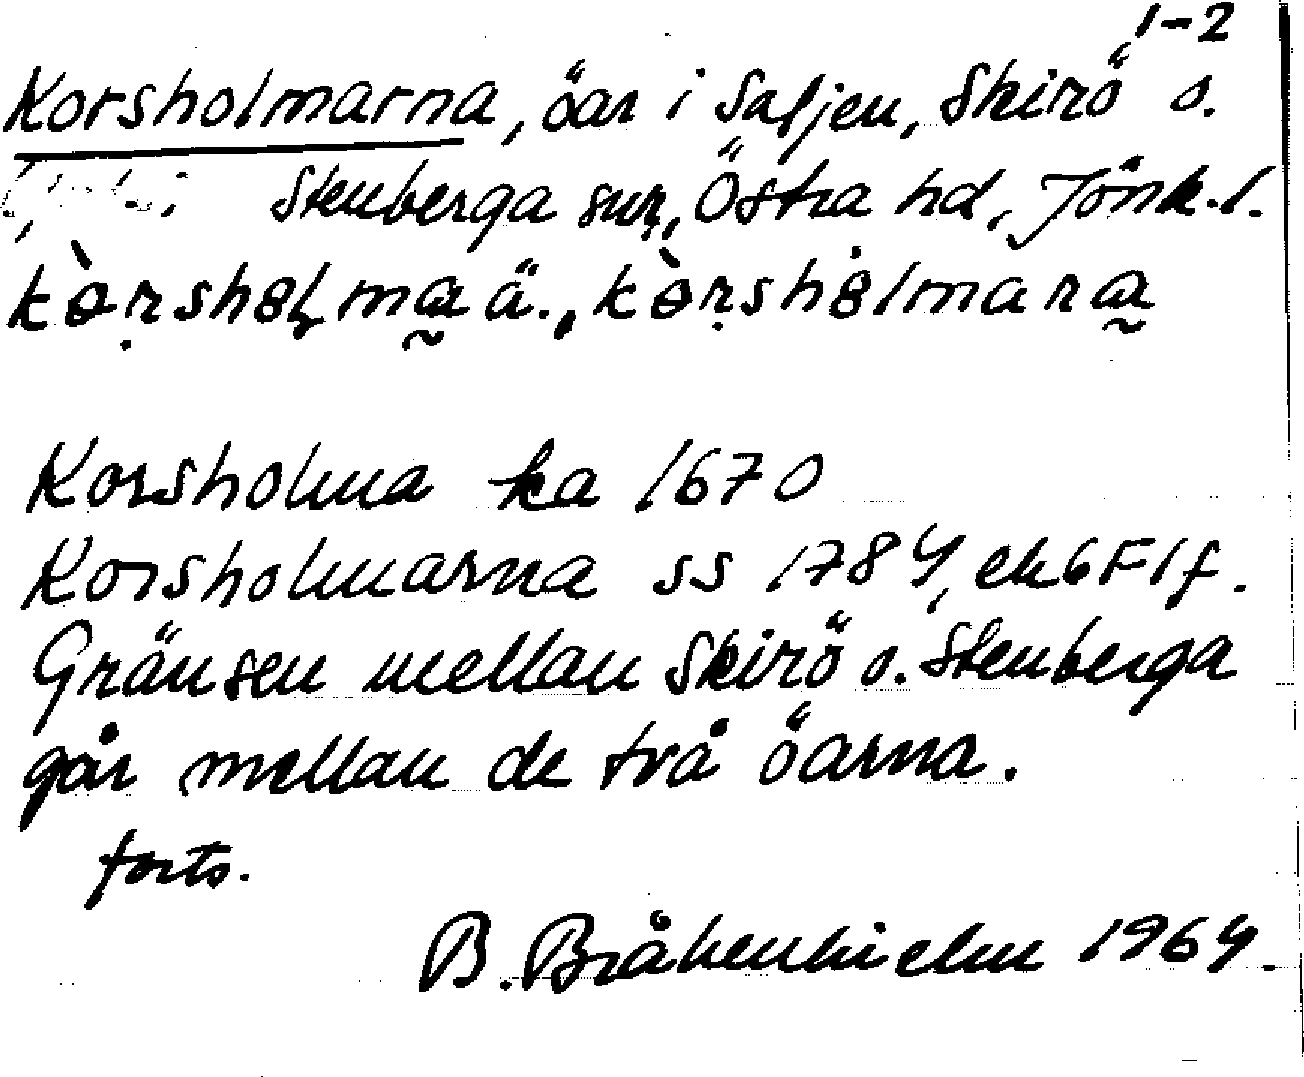 1-2
Korsholmarna, öar i Saljen, Skirö o.
Stenberga snr, Östra hd, Jönk. l.
kòrshol̥ma ä., kòrshålmara
Korsholma ka 1670
Korsholmarna ss 1784, ek 6F1f.
Gränsen mellan Skirö o. Stenberga
går mellan de två öarna.
forts.
B. Bråkenhielm 1964.